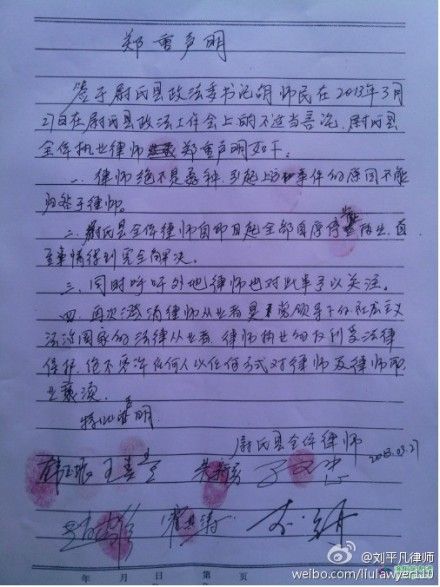 郑重声明
鉴于尉氏县政法委书记胡师民在2013年3月
27日在尉氏县政法工作会上的不适当言论,尉氏县
全体执业律师郑重声明如下:
一、律师绝不是孬种,引起上访事件的原因不能
归咎于律师。
二、尉氏县全体律师自即日起全部自序停业,直
至事情得到完全解决。
三、同时呼吁外地律师也对此事予以关注。
四、再次澄清律师从业者是党领导下的社会主义
法治国家的法律从业者,律师执业的权利受法律
保护,绝不允许任何人以任何方式对律师及律师职
业亵渎。
特此声明
尉氏县全体律师
2013.03.27
年 月 日 第 页
@刘平凡律师
weibo.com/liulawyer110